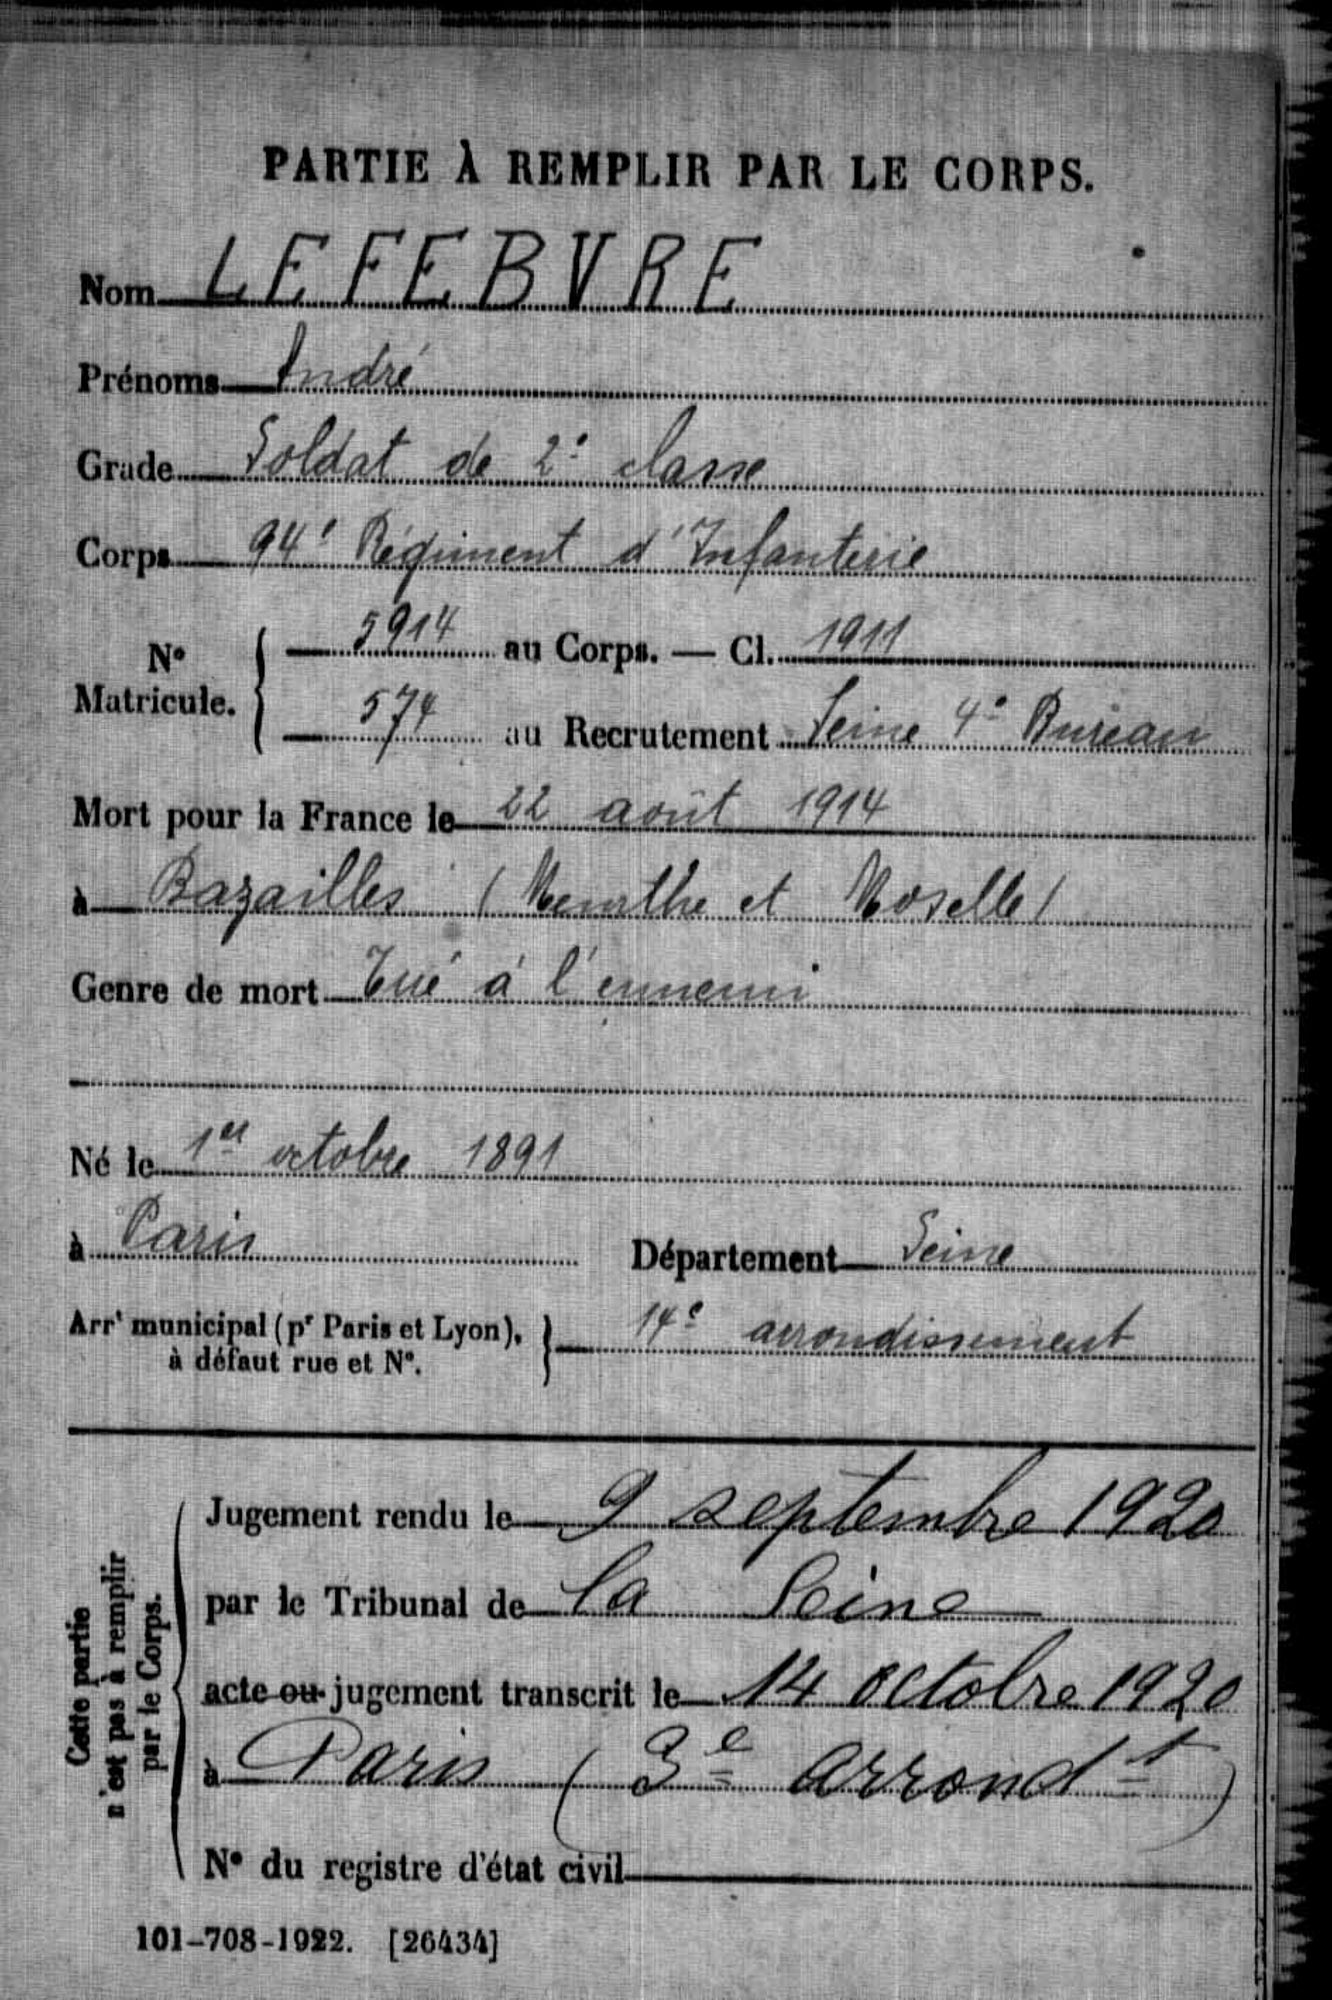 PARTIE À REMPLIR PAR LE CORPS.
Nom LEFEBVRE
Prénoms André
Grade Soldat de 2e classe
Corps 94e Régiment d'Infanterie
N° Matricule. { 5914 au Corps. — Cl. 1911
574 au Recrutement Seine 4e Bureau
Mort pour la France le 22 août 1914
à Bazailles (Meurthe et Moselle)
Genre de mort Tué à l'ennemi
Né le 1er octobre 1891
à Paris Département Seine
Arrt municipal (pr Paris et Lyon), à défaut rue et N°. } 14e arrondissement
Cette partie n'est pas à remplir par le Corps.
Jugement rendu le 9 septembre 1920
par le Tribunal de la Seine
acte ou jugement transcrit le 14 octobre 1920
à Paris (3e arrondt)
N° du registre d'état civil
101-708-1922. [26434]